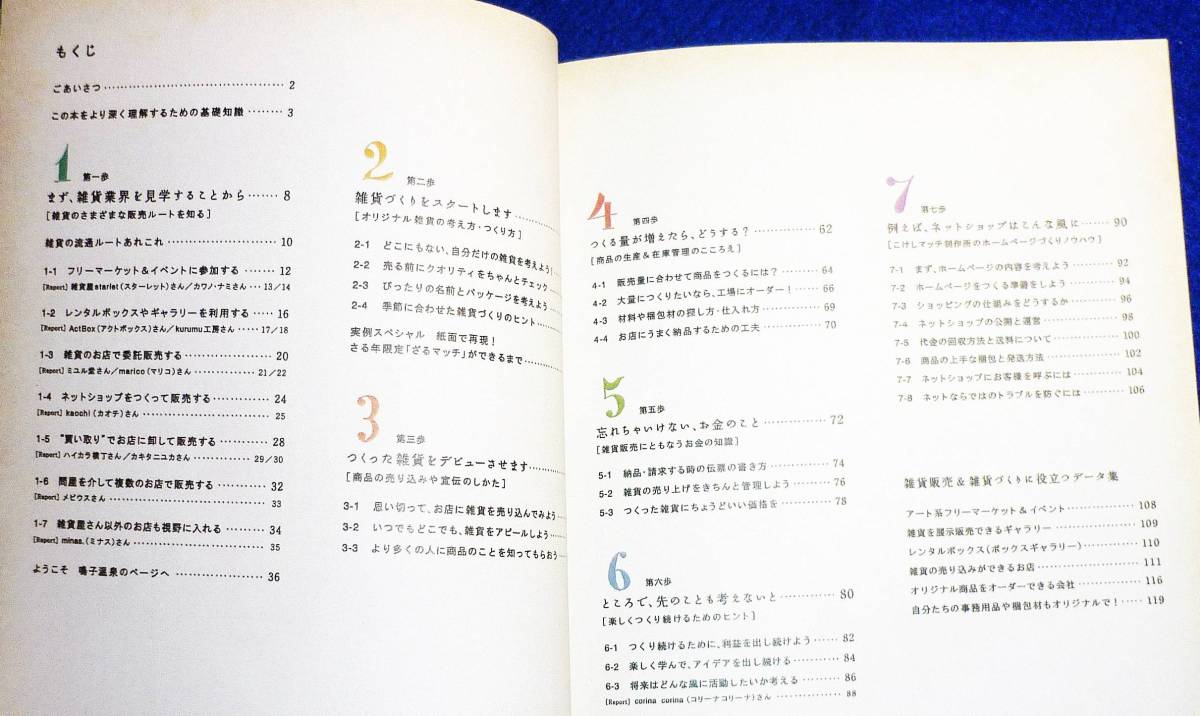 もくじ
ごあいさつ 2
この本をより深く理解するための基礎知識 3
1 第一歩
まず、雑貨業界を見学することから 8
[雑貨のさまざまな販売ルートを知る]
雑貨の流通ルートあれこれ 10
1-1 フリーマーケット&イベントに参加する 12
[Report] 雑貨屋starlet(スターレット)さん/カワノ・ナミさん 13/14
1-2 レンタルボックスやギャラリーを利用する 16
[Report] ActBox(アクトボックス)さん/kurumu工房さん 17/18
1-3 雑貨のお店で委託販売する 20
[Report] ミユル堂さん/marico(マリコ)さん 21/22
1-4 ネットショップをつくって販売する 24
[Report] kaochi(カオチ)さん 25
1-5 “買い取り”でお店に卸して販売する 28
[Report] ハイカラ横丁さん/カキタニユカさん 29/30
1-6 問屋を介して複数のお店で販売する 32
[Report] メビウスさん 33
1-7 雑貨屋さん以外のお店も視野に入れる 34
[Report] minas.(ミナス)さん 35
ようこそ 鳴子温泉のページへ 36
2 第二歩
雑貨づくりをスタートします
[オリジナル雑貨の考え方・つくり方]
2-1 どこにもない、自分だけの雑貨を考えよう!
2-2 売る前にクオリティをちゃんとチェック
2-3 ぴったりの名前とパッケージを考えよう
2-4 季節に合わせた雑貨づくりのヒント
実例スペシャル 紙面で再現!
さる年限定「ざるマッチ」ができるまで
3 第三歩
つくった雑貨をデビューさせます
[商品の売り込みや宣伝のしかた]
3-1 思い切って、お店に雑貨を売り込んでみよう
3-2 いつでもどこでも、雑貨をアピールしよう
3-3 より多くの人に商品のことを知ってもらおう
4 第四歩
つくる量が増えたら、どうする? 62
[商品の生産&在庫管理のこころえ]
4-1 販売量に合わせて商品をつくるには? 64
4-2 大量につくりたいなら、工場にオーダー! 66
4-3 材料や梱包材の探し方・仕入れ方 69
4-4 お店にうまく納品するための工夫 70
5 第五歩
忘れちゃいけない、お金のこと 72
[雑貨販売にともなうお金の知識]
5-1 納品・請求する時の伝票の書き方 74
5-2 雑貨の売り上げをきちんと管理しよう 76
5-3 つくった雑貨にちょうどいい価格を 78
6 第六歩
ところで、先のことも考えないと 80
[楽しくつくり続けるためのヒント]
6-1 つくり続けるために、利益を出し続けよう 82
6-2 楽しく学んで、アイデアを出し続ける 84
6-3 将来はどんな風に活動したいか考える 86
[Report] corina corina(コリーナコリーナ)さん 88
7 第七歩
例えば、ネットショップはこんな風に 90
[こけしマッチ制作所のホームページづくりノウハウ]
7-1 まず、ホームページの内容を考えよう 92
7-2 ホームページをつくる準備をしよう 94
7-3 ショッピングの仕組みをどうするか 96
7-4 ネットショップの公開と運営 98
7-5 代金の回収方法と送料について 100
7-6 商品の上手な梱包と発送方法 102
7-7 ネットショップにお客様を呼ぶには 104
7-8 ネットならではのトラブルを防ぐには 106
雑貨販売&雑貨づくりに役立つデータ集
アート系フリーマーケット&イベント 108
雑貨を展示販売できるギャラリー 109
レンタルボックス(ボックスギャラリー) 110
雑貨の売り込みができるお店 111
オリジナル商品をオーダーできる会社 116
自分たちの事務用品や梱包材もオリジナルで! 119